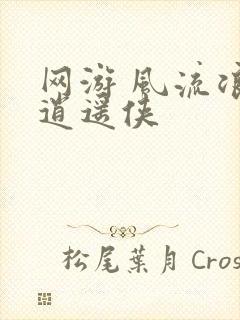 网游風流浪
逍遥侠
松尾葉月Cros